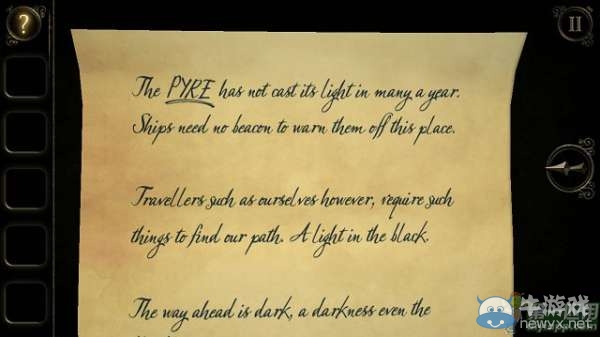 ?
The PYRE has not cast its light in many a year.
Ships need no beacon to warn them off this place.
Travellers such as ourselves however, require such
things to find our path. A light in the black.
The way ahead is dark, a darkness even the
牛游戏
newyx.net